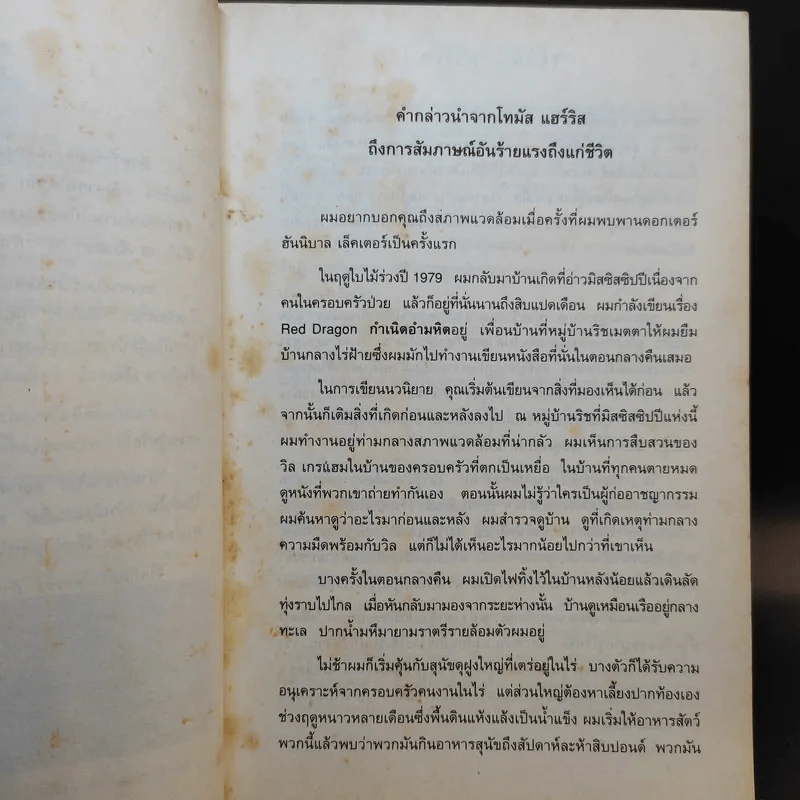 คำกล่าวนำจากโทมัส แฮร์ริส
ถึงการสัมภาษณ์อันร้ายแรงถึงแก่ชีวิต
ผมอยากบอกคุณถึงสภาพแวดล้อมเมื่อครั้งที่ผมพบพานดอกเตอร์
ฮันนิบาล เล็คเตอร์เป็นครั้งแรก
ในฤดูใบไม้ร่วงปี 1979 ผมกลับมาบ้านเกิดที่อ่าวมิสซิสซิปปีเนื่องจาก
คนในครอบครัวป่วย แล้วก็อยู่ที่นั่นนานถึงสิบแปดเดือน ผมกำลังเขียนเรื่อง
Red Dragon กำเนิดอำมหิตอยู่ เพื่อนบ้านที่หมู่บ้านริชเมตตาให้ผมยืม
บ้านกลางไร่ฝ้ายซึ่งผมมักไปทำงานเขียนหนังสือที่นั่นในตอนกลางคืนเสมอ
ในการเขียนนวนิยาย คุณเริ่มต้นเขียนจากสิ่งที่มองเห็นได้ก่อน แล้ว
จากนั้นก็เติมสิ่งที่เกิดก่อนและหลังลงไป ณ หมู่บ้านริชที่มิสซิสซิปปีแห่งนี้
ผมทำงานอยู่ท่ามกลางสภาพแวดล้อมที่น่ากลัว ผมเห็นการสืบสวนของ
วิล เกรแฮมในบ้านของครอบครัวที่ตกเป็นเหยื่อ ในบ้านที่ทุกคนตายหมด
ดูหนังที่พวกเขาถ่ายทำกันเอง ตอนนั้นผมไม่รู้ว่าใครเป็นผู้ก่ออาชญากรรม
ผมค้นหาดูว่าอะไรมาก่อนและหลัง ผมสำรวจดูบ้าน ดูที่เกิดเหตุท่ามกลาง
ความมืดพร้อมกับวิล แต่ก็ไม่ได้เห็นอะไรมากน้อยไปกว่าที่เขาเห็น
บางครั้งในตอนกลางคืน ผมเปิดไฟทิ้งไว้ในบ้านหลังน้อยแล้วเดินลัด
ทุ่งราบไปไกล เมื่อหันกลับมามองจากระยะห่างนั้น บ้านดูเหมือนเรืออยู่กลาง
ทะเล ปากน้ำมหึมายามราตรีรายล้อมตัวผมอยู่
ไม่ช้าผมก็เริ่มคุ้นกับสุนัขดุฝูงใหญ่ที่เตร่อยู่ในไร่ บางตัวก็ได้รับความ
อนุเคราะห์จากครอบครัวคนงานในไร่ แต่ส่วนใหญ่ต้องหาเลี้ยงปากท้องเอง
ช่วงฤดูหนาวหลายเดือนซึ่งพื้นดินแห้งแล้งเป็นน้ำแข็ง ผมเริ่มให้อาหารสัตว์
พวกนี้แล้วพบว่าพวกมันกินอาหารสุนัขถึงสัปดาห์ละห้าสิบปอนด์ พวกมัน